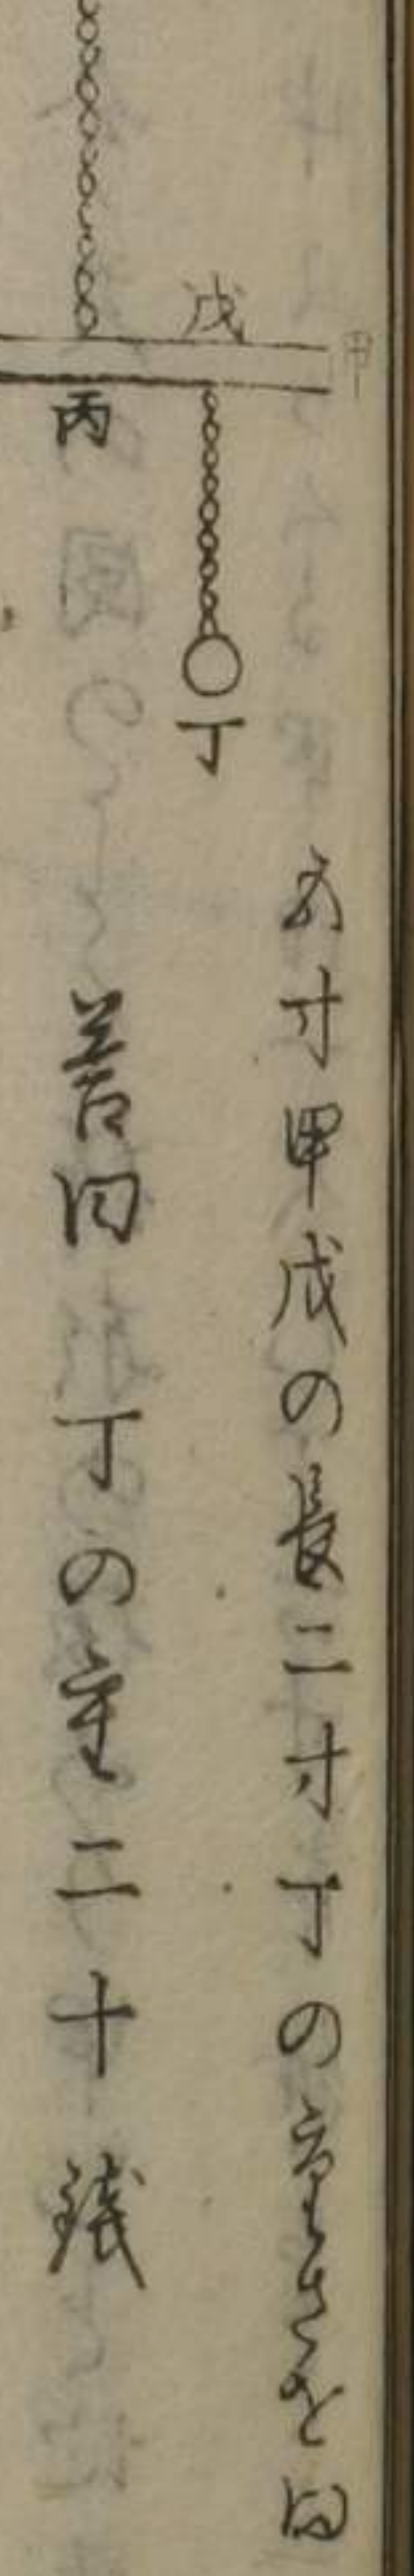 甲
戊
丙
丁
五寸甲戊の長二寸丁の重さを問
答曰 丁の重二十銭